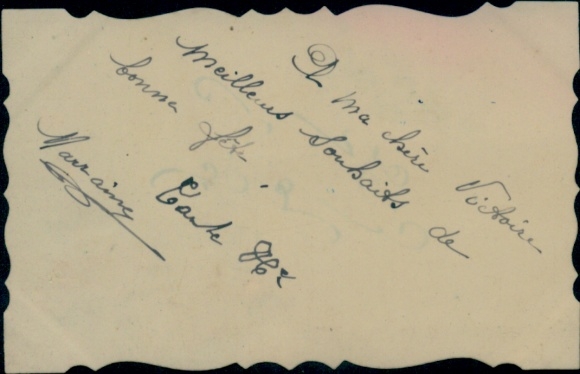 A ma chère Victoire
Meilleurs Souhaits de
bonne fête
Tante
Marraine